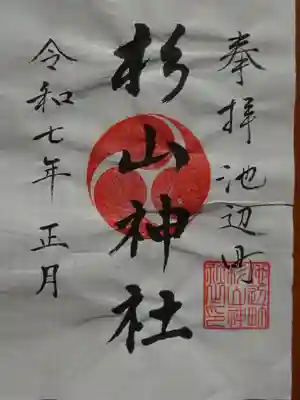 奉拝 池辺町
杉山神社
令和七年 正月